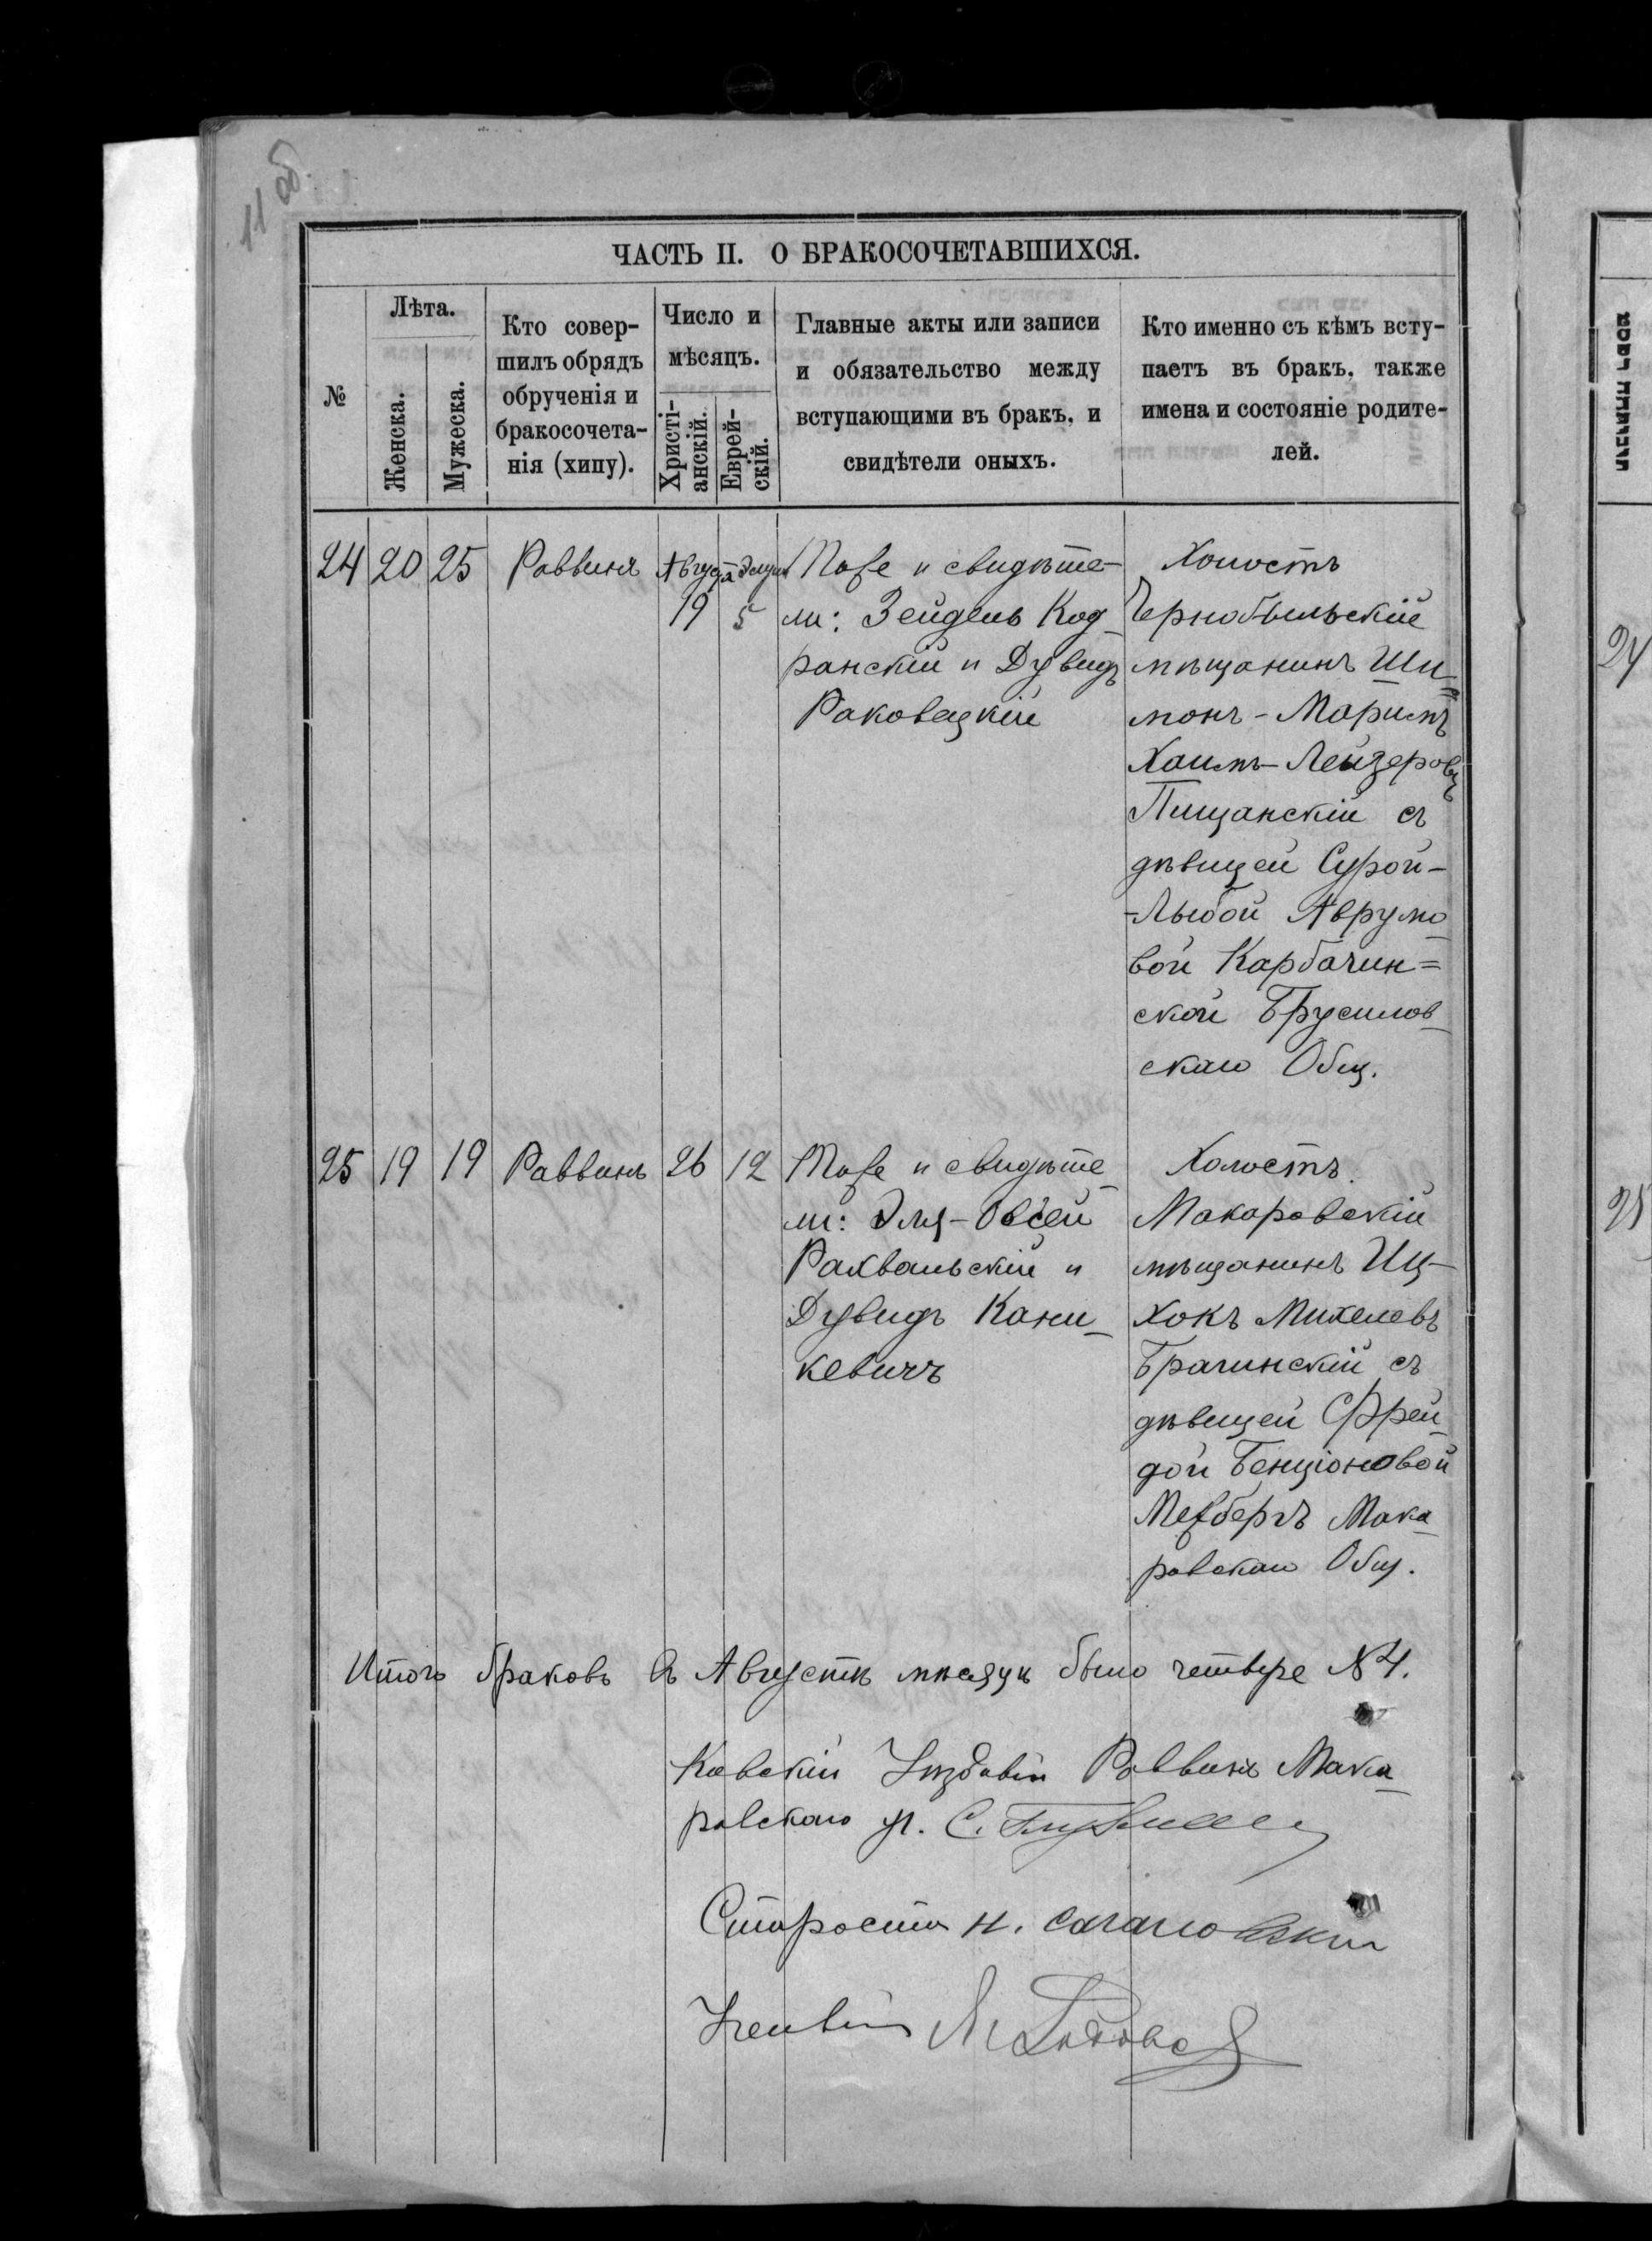 11 об.
ЧАСТЬ II. О БРАКОСОЧЕТАВШИХСЯ.
№
Лѣта.
Женска.
Мужеска.
Кто совер-
шилъ обрядъ
обрученія и
бракосочета-
нія (хипу).
Число и
мѣсяцъ.
Христі-
анскій.
Еврей-
скій.
Главные акты или записи
и обязательство между
вступающими въ бракъ, и
свидѣтели оныхъ.
Кто именно съ кѣмъ всту-
паетъ въ бракъ, также
имена и состояніе родите-
лей.
24 20 25 Раввинъ Августа 19 Элула 5
Тоже и свидѣте-
ли: Зейдель Код-
ранскій и Дувидъ
Раковецкій
Холостъ
Чернобыльскій
мѣщанинъ Ши-
монъ-Маримъ
Хаимъ-Лейзеровъ
Пищанскій съ
дѣвицей Сурой-
-Лыбой Аврумо-
вой Карбачин=
ской Брусилов-
скаго Общ.
25 19 19 Раввинъ 26 12
Тоже и свидѣте-
ли: Эля-Овсей
Рахвальскій и
Дувидъ Кани-
кевичъ
Холостъ
Макаровскій
мѣщанинъ Иц-
хокъ Михелевъ
Брагинскій съ
дѣвицей Фрей-
дой Бенціоновой
Межбергъ Мака-
ровскаго Общ.
Итого браковъ въ Августѣ мѣсяцѣ было четверо № 4.
Кіевскій Уѣздный Раввинъ Мака-
ровскаго уч. С.
Староста Н.
Ученый М.
24
25